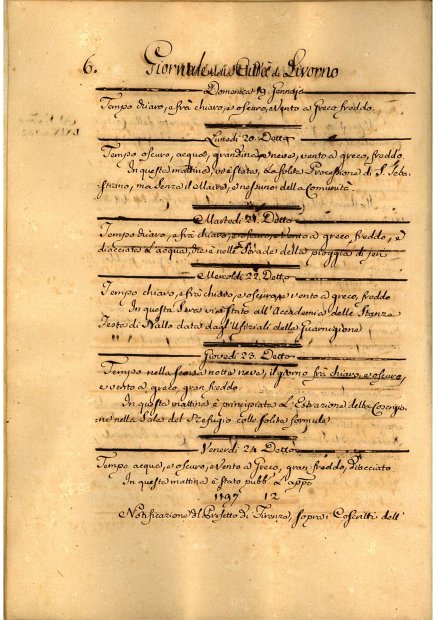 6. Giornale della Città di Livorno
Domenica 19. Gennajo
Tempo chiaro, e frà chiaro, e oscuro, e vento a greco freddo.
Lunedi 20. Detto
Tempo oscuro, acqua, grandine, e neve, vento a greco, freddo.
In questa mattina vi è stata la solita Processione di S. Seba-
stiano, ma senza il Maire, e nessuno della Comunità
Martedi 21. Detto
Tempo chiaro, e frà chiaro, e oscuro, e vento a greco, freddo, e
diacciata l'acqua, che è nelle Strade della pioggia di jeri
Mercoldi 22. Detto
Tempo chiaro, e frà chiaro, e oscuro, e vento a greco, freddo
In questa Sera vi è stato all'Accademia delle Stanze
Festa di Ballo data dagl'Ufiziali della Guarnigione
Giovedi 23. Detto
Tempo nella scorsa notte neve, il giorno frà chiaro, e oscuro,
e vento a greco, gran freddo.
In questa mattina è principiata l'Estrazione della Coscrizio-
ne nella Sala del Refugio colle solite formule
Venerdi 24. Detto
Tempo acqua, e oscuro, e vento a Greco, gran freddo, diacciato
In questa mattina è stato pubb. l'appo
1197 12
Notificazione del Prefetto di Firenze, sopra i Coscritti dell'